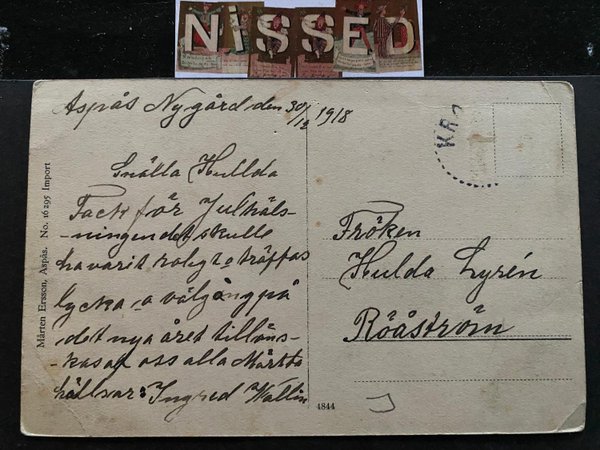 NiSSED
Aspås Nygård den 30/12 1918
Snälla Hullda
Tack för Julhäls-
-ningen det skulle
ha varit roligt träffas
lycka o välgång på
det nya året tillöns-
-kas af oss alla
hällsar: Ingred Wallin
Fröken
Hulda Lyrén
Röåström
KR
Mårten Ersson, Aspås. No. 16295 Import
4844